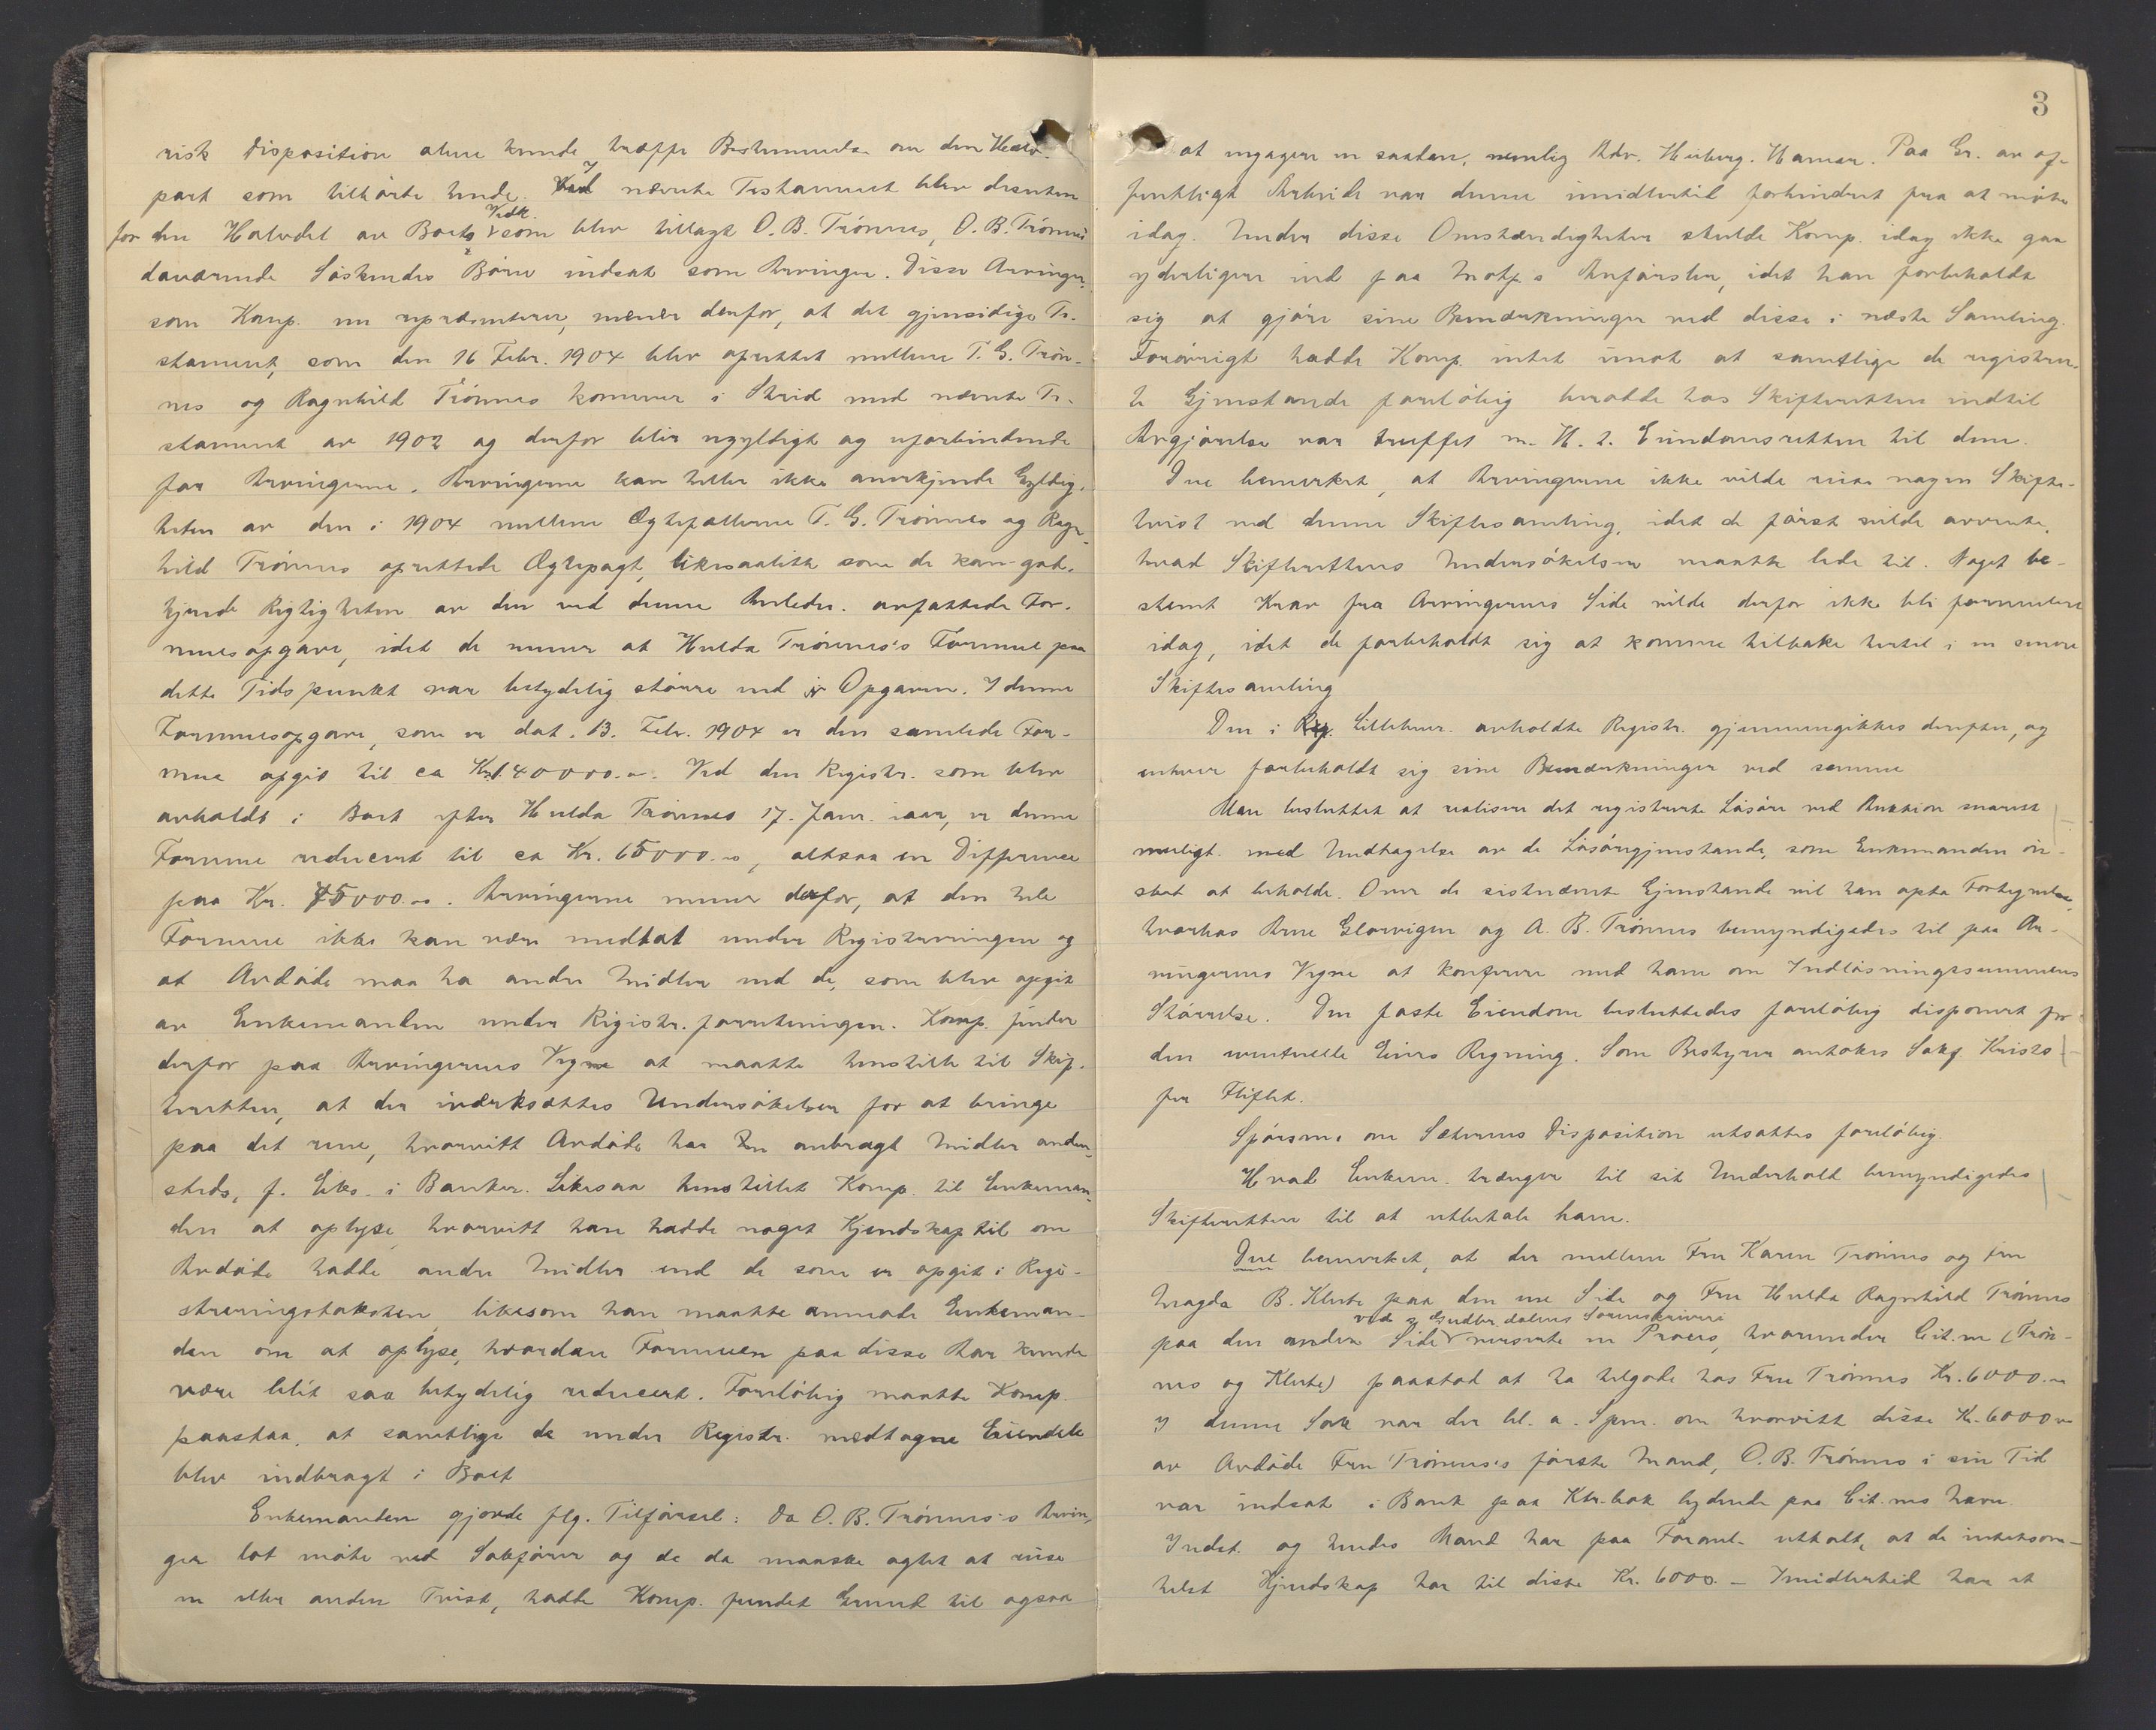 risk Disposition alene kunde træffe Bestemmelse om den Halv-
part som tilhørte hende. I nævnte Testament blev desuten
for den Halvdel av Boets Vedk. som blev tillagt O. B. Trønnes, O. B. Trønnes
daværende Søskendes Børn indsat som Arvinger. Disse Arvinger,
som Komp. nu repræsenterer, mener derfor, at det gjensidige Te-
stament, som den 16 Febr. 1904 blev oprettet mellem T. G. Trøn-
nes og Ragnhild Trønnes kommer i Strid med nævnte Te-
stament av 1902 og derfor blir ugyldigt og uforbindende
for Arvingerne. Arvingerne kan heller ikke anerkjende Gyldig-
heten av den i 1904 mellem Ægtefællerne T. G. Trønnes og Ragn-
hild Trønnes oprettede Ægtepagt, likesaalitt som de kan god-
kjende Rigtigheten av den ved denne Anledn. avfattede For-
muesopgave, idet de mener at Hulda Trønnes's Formue paa
dette Tidspunkt var betydelig større end i Opgaven. I denne
Formuesopgave, som er dat. 13. Febr. 1904 er den samlede For-
mue opgit til ca Kr. 140000.00. Ved den Registr. som blev
avholdt i Boet efter Hulda Trønnes 17. Janr. iaar, er denne
Formue reducert til ca Kr. 65000.00, altsaa en Differance
paa Kr. 75000.00. Arvingerne mener derfor, at den hele
Formue ikke kan være medtat under Registreringen og
at Avdøde maa ha andre Midler end de, som blev opgit
av Enkemanden under Registr.forretningen. Komp. finder
derfor paa Arvingernes Vegne at maatte henstille til Skif-
teretten, at der iverksættes Undersøkelser for at bringe
paa det rene, hvorvitt Avdøde har anbragt Midler anden-
steds, f. Eks. i Banker. Likesaa henstillet Komp. til Enkeman-
den at oplyse, hvorvitt han hadde noget Kjendskap til om
Avdøde hadde andre Midler end de som er opgit i Regi-
streringstaksten, likesom han maatte anmode Enkeman-
den om at oplyse, hvordan Formuen paa disse Aar kunde
være blit saa betydelig reducert. Foreløbig maatte Komp.
paastaa, at samtlige de under Registr. medtagne Eiendele
blev indbragt i Boet
Enkemanden gjorde flg. Tilførsel: Da O. B. Trønnes's Arvin-
ger lot møte ved Sakfører og de da maaske agtet at reise
en eller anden Tvist, hadde Komp. fundet Grund til ogsaa
3
at engagere en saadan, nemlig Adv. Heiberg, Hamar. Paa Gr. av of-
fentligt Arbeide var denne imidlertid forhindret fra at møte
idag. Under disse Omstændigheter skulde Komp. idag ikke gaa
yderligere ind paa Motp.s Anførsler, idet han forbeholdt
sig at gjøre sine Bemærkninger ved disse i næste Samling.
Forøvrigt hadde Komp. intet imot at samtlige de registrer-
te Gjenstande foreløbig beroedde hos Skifteretten indtil
Avgjørelse var truffet m. H. t. Eiendomsretten til dem.
Due bemerket, at Arvingerne ikke vilde reise nogen Skifte-
tvist ved denne Skiftesamling, idet de først vilde avvente,
hvad Skifterettens Undersøkelser maatte lede til. Noget be-
stemt Krav fra Arvingernes Side vilde derfor ikke bli formulert
idag, idet de forbeholdt sig at komme tilbake hertil i en senere
Skiftesamling
Den i Lillehmr. avholdte Registr. gjennemgikkes derefter, og
enhver forbeholdt sig sine Bemærkninger ved samme
Man besluttet at realisere det registrerte Løsøre ved Auktion snarest
muligt. med Undtagelse av de Løsøregjenstande, som Enkemanden øn-
sket at beholde. Over de sistnævnte Gjenstande vil han opta Fortegnelse,
hvorhos Arne Glorvigen og A. B. Trønnes bemyndigedes til paa Ar-
vingernes Vegne at konferere med ham om Indløsningssummens
Størrelse. Den faste Eiendom besluttedes foreløbig disponert for
den eventuelle Eiers Regning. Som Bestyrer antokes Sakf. Kristo-
fer Fliflet.
Spørsm. om Sæterens Disposition utsattes foreløbig.
Hvad Enkem. trænger til sit Underhold bemyndigedes
Skifteretten til at utbetale ham.
Due bemerket, at der mellem Fru Karen Trønnes og Fru
Magda B. Klute paa den ene Side og Fru Hulda Ragnhild Trønnes
paa den anden Side ved S. Gudbr.dalens Sorenskriveri verserte en Proces, hvorunder Cit.ne (Trøn-
nes og Klute) paastod at ha tilgode hos Fru Trønnes Kr. 6000.00
I denne Sak var der bl. a. Spm. om hvorvitt disse Kr. 6000.00
av Avdøde Fru Trønnes's første Mand, O. B. Trønnes i sin Tid
var indsat i Bank paa Ktr.bok lydende paa Cit.nes Navn.
Indst. og hendes Mand har paa Foranl. uttalt, at de intetsom-
helst Kjendskap har til disse Kr. 6000.– Imidlertid har et